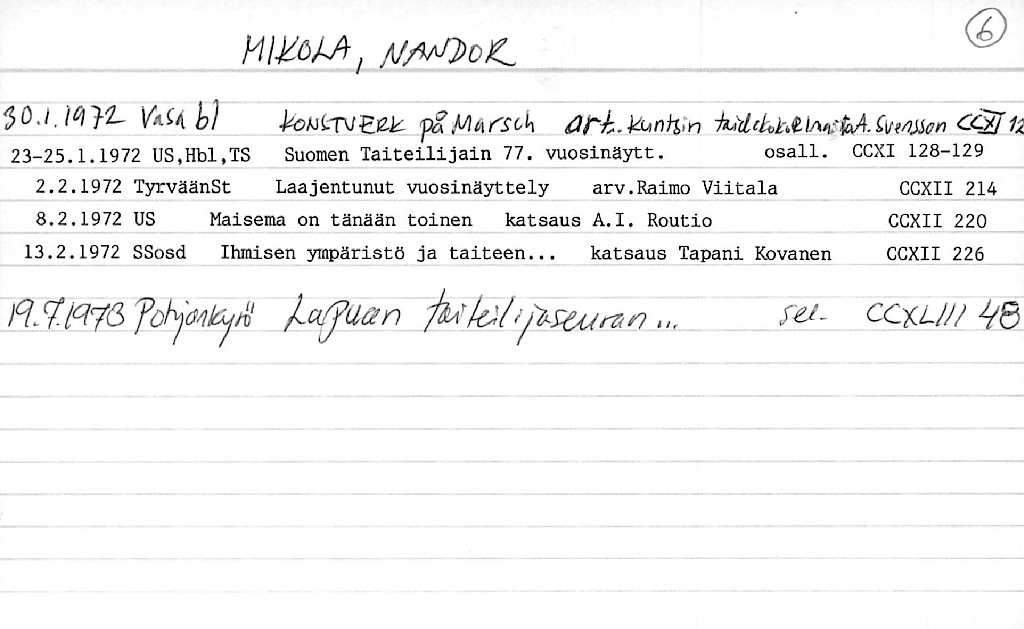 6
MIKOLA, NANDOR
30.1.1972 Vasa bl KONSTVERK på Marsch art. Kuntsin A. Svensson CCXI 12
23-25.1.1972 US,Hbl,TS Suomen Taiteilijain 77. vuosinäytt. osall. CCXI 128-129
2.2.1972 TyrväänSt Laajentunut vuosinäyttely arv.Raimo Viitala CCXII 214
8.2.1972 US Maisema on tänään toinen katsaus A.I. Routio CCXII 220
13.2.1972 SSosd Ihmisen ympäristö ja taiteen... katsaus Tapani Kovanen CCXII 226
19.7.1973 Pohjankyrö Lapuan taiteilijaseuran... sel. CCXLIII 48